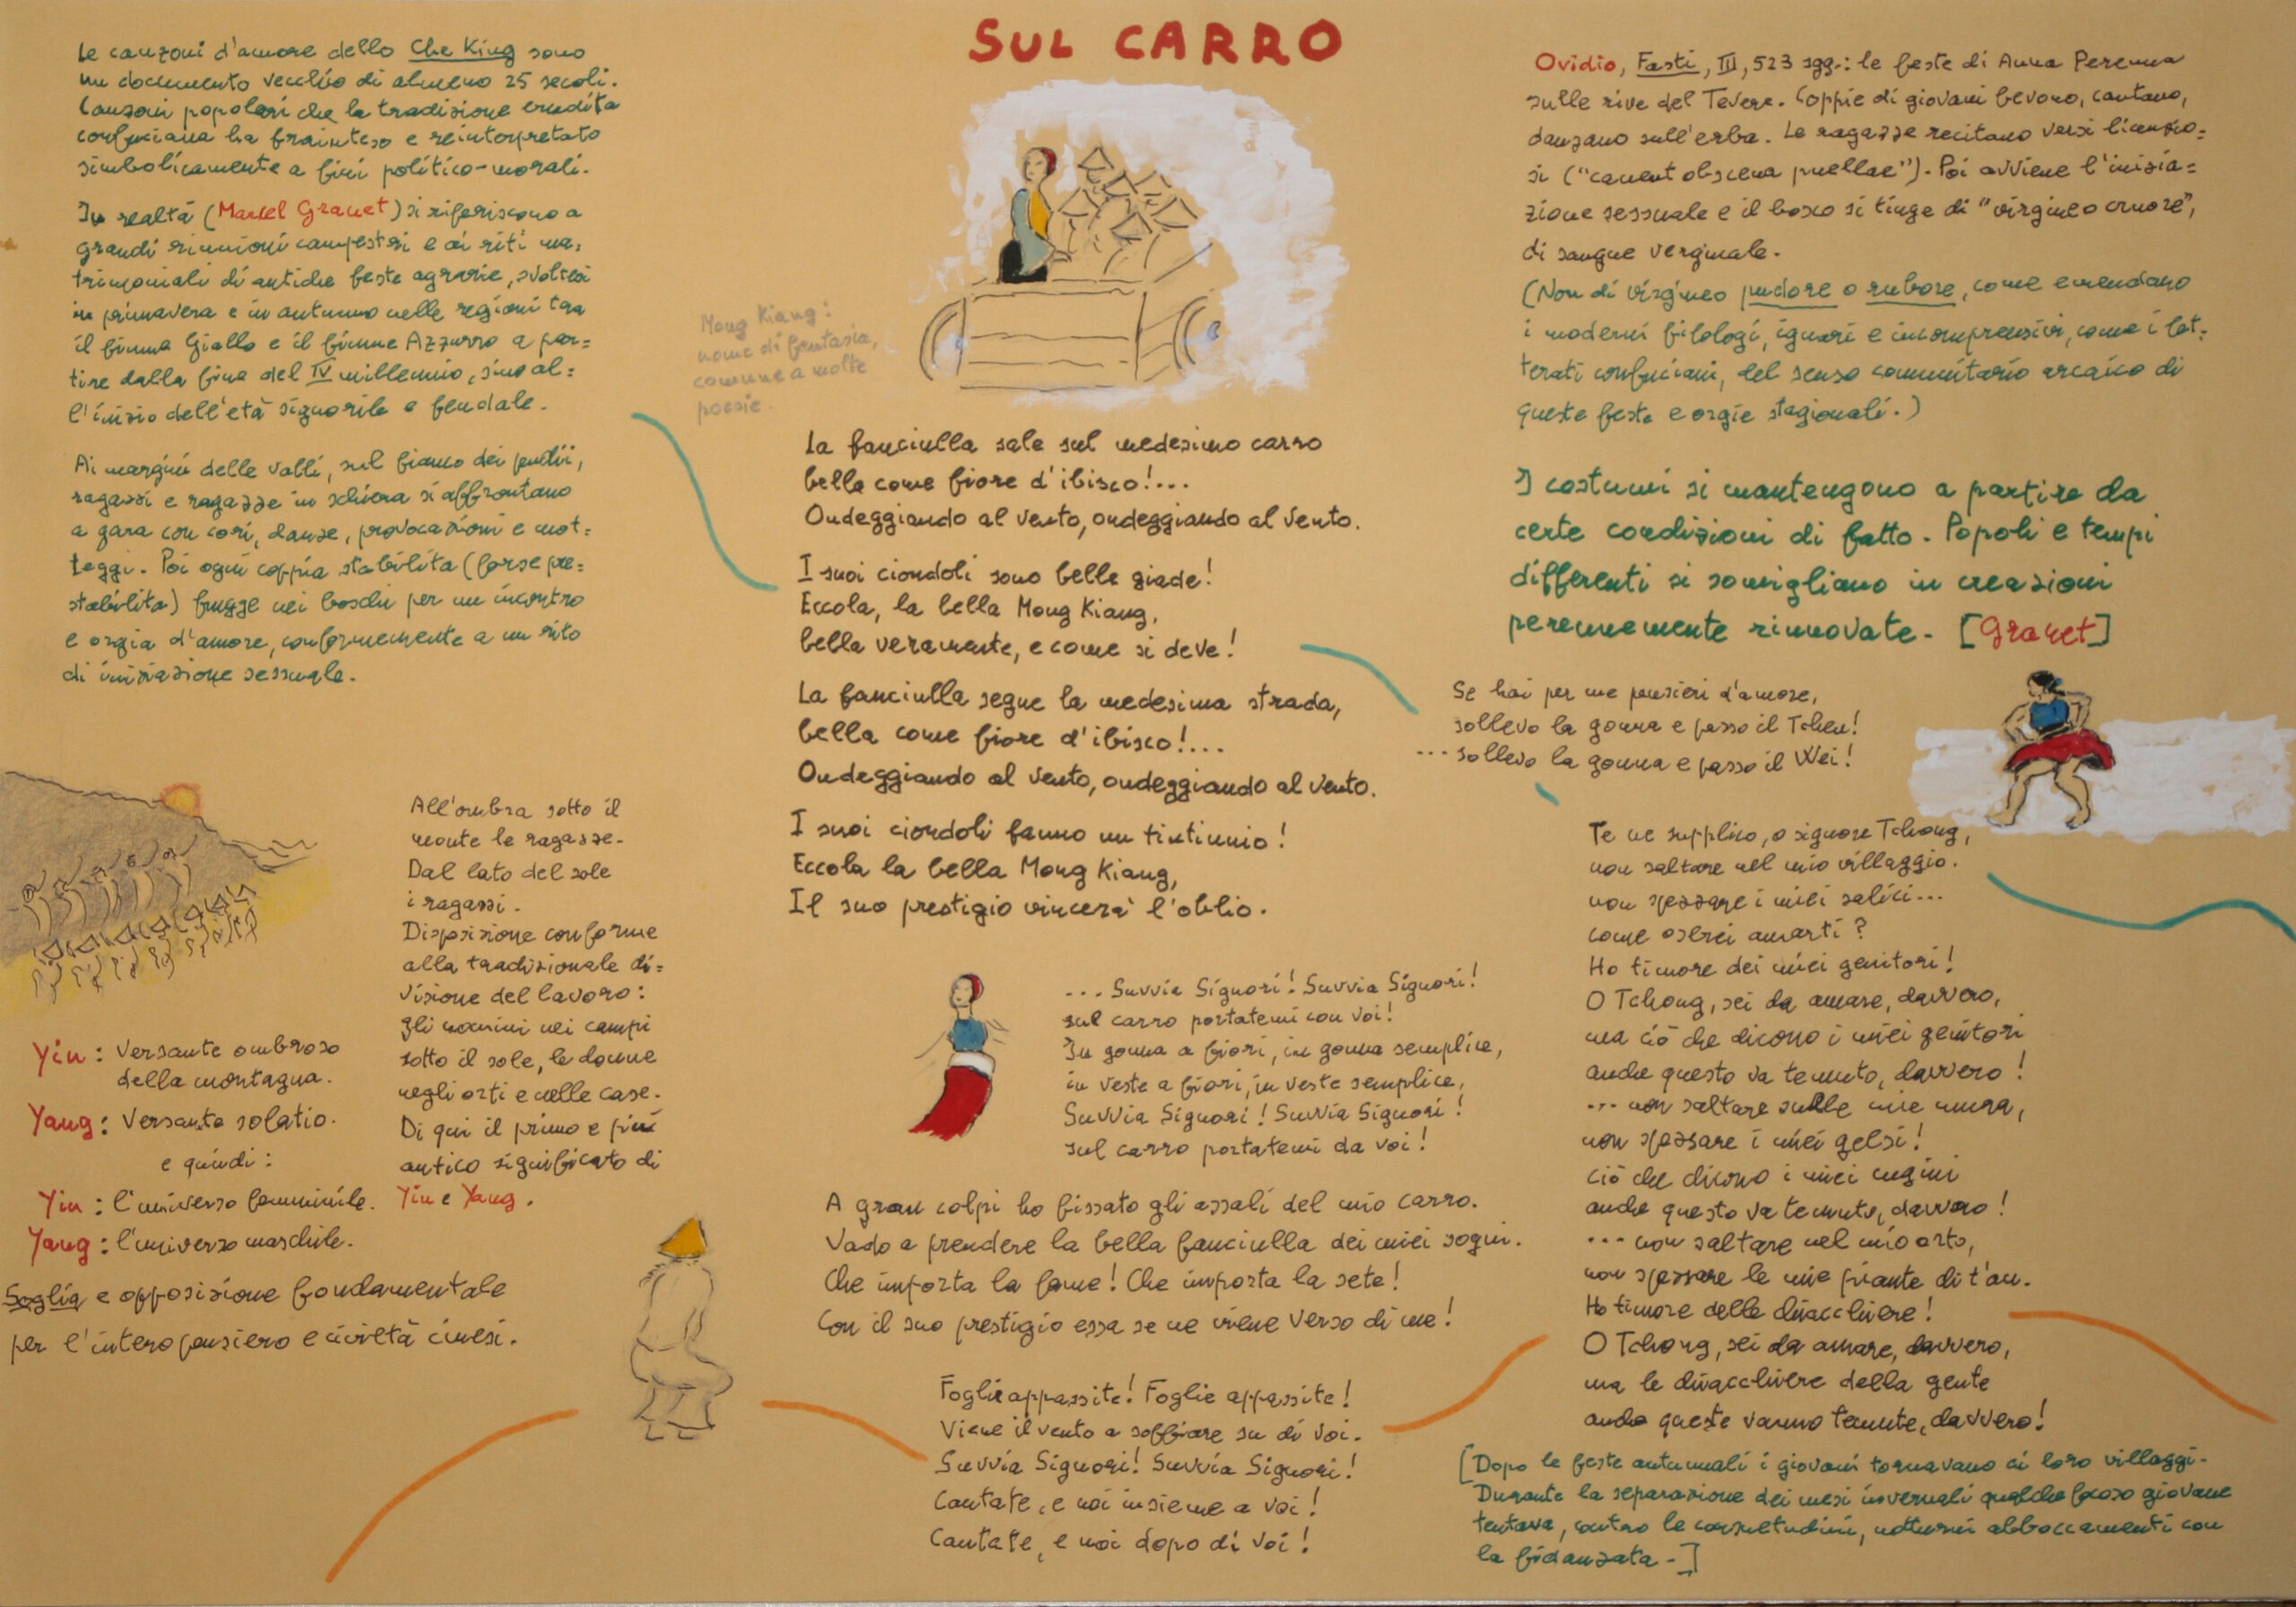 SUL CARRO
Le canzoni d'amore dello Che King sono
un documento vecchio di almeno 25 secoli.
Canzoni popolari che la tradizione erudita
confuciana ha frainteso e reinterpretato
simbolicamente a fini politico-morali.
In realtà (Marcel Granet) si riferiscono a
grandi riunioni campestri e ai riti ma=
trimoniali di antiche feste agrarie, svoltesi
in primavera e in autunno nelle regioni tra
il fiume Giallo e il fiume Azzurro a par=
tire dalla fine del IV millennio, sino al=
l'inizio dell'età signorile e feudale.
Ai margini delle valli, sul fianco dei pendii,
ragazzi e ragazze in schiera si affrontano
a gara con cori, danze, provocazioni e mot=
teggi. Poi ogni coppia stabilita (forse pre=
stabilita) fugge nei boschi per un incontro
e orgia d'amore, conformemente a un rito
di iniziazione sessuale.
All'ombra sotto il
monte le ragazze.
Dal lato del sole
i ragazzi.
Disposizione conforme
alla tradizionale di=
visione del lavoro:
gli uomini nei campi
sotto il sole, le donne
negli orti e nelle case.
Di qui il primo e più
antico significato di
Yin e Yang.
Yin: Versante ombroso
della montagna.
Yang: Versante solatio.
e quindi:
Yin: l'universo femminile.
Yang: l'universo maschile.
Soglia e opposizione fondamentale
per l'intero pensiero e civiltà cinesi.
Mong Kiang:
nome di fantasia,
comune a molte
poesie.
La fanciulla sale sul medesimo carro
bella come fiore d'ibisco!...
Ondeggiando al vento, ondeggiando al vento.
I suoi ciondoli sono belle giade!
Eccola, la bella Mong Kiang,
bella veramente, e come si deve!
La fanciulla segue la medesima strada,
bella come fiore d'ibisco!...
Ondeggiando al vento, ondeggiando al vento.
I suoi ciondoli fanno un tintinnio!
Eccola la bella Mong Kiang,
Il suo prestigio vincerà l'oblio.
... Suvvia Signori! Suvvia Signori!
sul carro portatemi con voi!
In gonna a fiori, in gonna semplice,
in veste a fiori, in veste semplice,
Suvvia Signori! Suvvia Signori!
sul carro portatemi da voi!
A gran colpi ho fissato gli assali del mio carro.
Vado a prendere la bella fanciulla dei miei sogni.
Che importa la fame! Che importa la sete!
Con il suo prestigio essa se ne viene verso di me!
Foglie appassite! Foglie appassite!
Viene il vento a soffiare su di voi.
Suvvia Signori! Suvvia Signori!
Cantate, e noi insieme a voi!
Cantate, e noi dopo di voi!
Ovidio, Fasti, III, 523 sgg.: le feste di Anna Perenna
sulle rive del Tevere. Coppie di giovani bevono, cantano,
danzano sull'erba. Le ragazze recitano versi licenzio=
si ("canent obscena puellae"). Poi avviene l'inizia=
zione sessuale e il bosco si tinge di "virgineo cruore",
di sangue verginale.
(Non di virgineo pudore o rubore, come emendano
i moderni filologi, ignari e incomprensivi, come i let=
terati confuciani, del senso comunitario arcaico di
queste feste e orgie stagionali.)
I costumi si mantengono a partire da
certe condizioni di fatto. Popoli e tempi
differenti si somigliano in creazioni
perennemente rinnovate. [Granet]
Se hai per me pensieri d'amore,
sollevo la gonna e passo il Tchen!
... sollevo la gonna e passo il Wei!
Te ne supplico, o signore Tchong,
non saltare nel mio villaggio.
non spezzare i miei salici...
come oserei amarti?
Ho timore dei miei genitori!
O Tchong, sei da amare, davvero,
ma ciò che dicono i miei genitori
anche questo va temuto, davvero!
... non saltare sulle mie mura,
non spezzare i miei gelsi!
ciò che dicono i miei cugini
anche questo va temuto, davvero!
... non saltare nel mio orto,
non spezzare le mie piante di t'an.
Ho timore delle chiacchiere!
O Tchong, sei da amare, davvero,
ma le chiacchiere della gente
anche queste vanno temute, davvero!
[Dopo le feste autunnali i giovani tornavano ai loro villaggi.
Durante la separazione dei mesi invernali qualche focoso giovane
tentava, contro le consuetudini, notturni abboccamenti con
la fidanzata.]